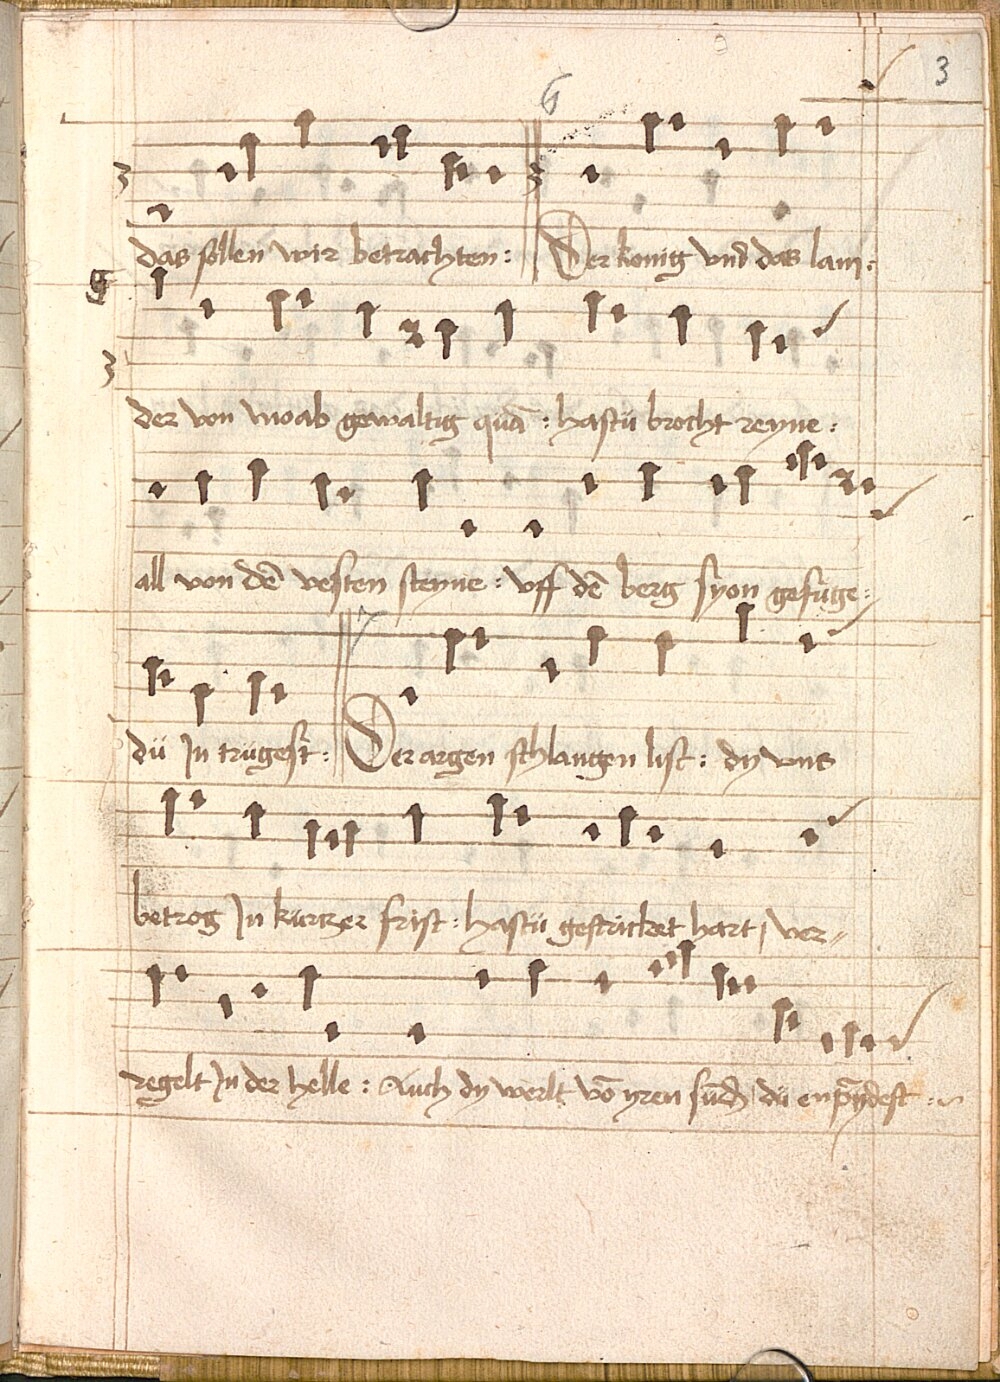 3
6
das sollen wir betrachten : Der konig vnd das lam :
g
der von moab gewaltig quā : hastu brocht reyne :
all von dē vesten steyne : vff dē berg syon gefuge :
7
dü In trügest : Der argen schlangen list : dy vns
betrog In kurtzer frist : hastü gestricket hart / ver=
regelt In der helle : Auch dy werlt vō yren sund dü